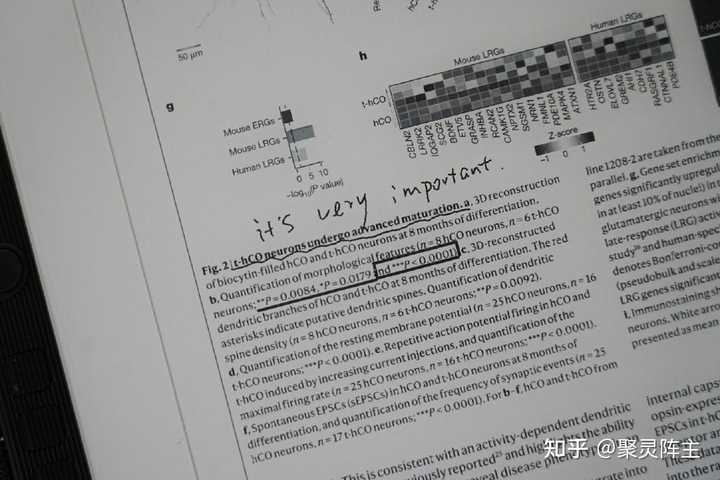 50 µm
h
Mouse LRGs
Human LRGs
t-hCO
hCO
CBLN2
LRRK2
IQGAP2
SCG2
BDNF
ETV5
GRASP
INHBA
RCAN2
CAMK1G
NPTX2
SGSM1
NRN1
FMNL1
PDE10A
MAPK4
ATXN1
HTR2A
OSTN
ELOVL7
GREM2
AHI1
CDH7
RASGRF1
CTNNAL1
PDE4B
Z-score
−1 0 1
g
Mouse ERGs
Mouse LRGs
Human LRGs
0 5 10
−log10(P value)
it's very important.
Fig. 2 | t-hCO neurons undergo advanced maturation. a, 3D reconstruction
of biocytin-filled hCO and t-hCO neurons at 8 months of differentiation.
b, Quantification of morphological features (n = 8 hCO neurons, n = 6 t-hCO
neurons; **P = 0.0084, *P = 0.0179 and ***P < 0.0001). c, 3D-reconstructed
dendritic branches of hCO and t-hCO at 8 months of differentiation. The red
asterisks indicate putative dendritic spines. Quantification of dendritic
spine density (n = 8 hCO neurons, n = 6 t-hCO neurons; **P = 0.0092).
d, Quantification of the resting membrane potential (n = 25 hCO neurons, n = 16
t-hCO neurons; ***P < 0.0001). e, Repetitive action potential firing in hCO and
t-hCO induced by increasing current injections, and quantification of the
maximal firing rate (n = 25 hCO neurons, n = 16 t-hCO neurons; ***P < 0.0001).
f, Spontaneous EPSCs (sEPSCs) in hCO and t-hCO neurons at 8 months of
differentiation, and quantification of the frequency of synaptic events (n = 25
hCO neurons, n = 17 t-hCO neurons; ***P < 0.0001). For b–f, hCO and t-hCO from
line 1208-2 are taken from the
parallel. g, Gene set enrichm
genes significantly upregul
in at least 10% of nuclei) in
glutamatergic neurons wi
late-response (LRG) activ
study26 and human-speci
denotes Bonferroni-co
(pseudobulk and scale
LRG genes significant
i, Immunostaining sh
neurons. White arrow
presented as mean
This is consistent with an activity-dependent dendritic
viously reported25 and highlights the ability
veal disease phen
internal caps
opsin-expre
EPSCs in t-hC
into the ra
知乎 @聚灵阵主